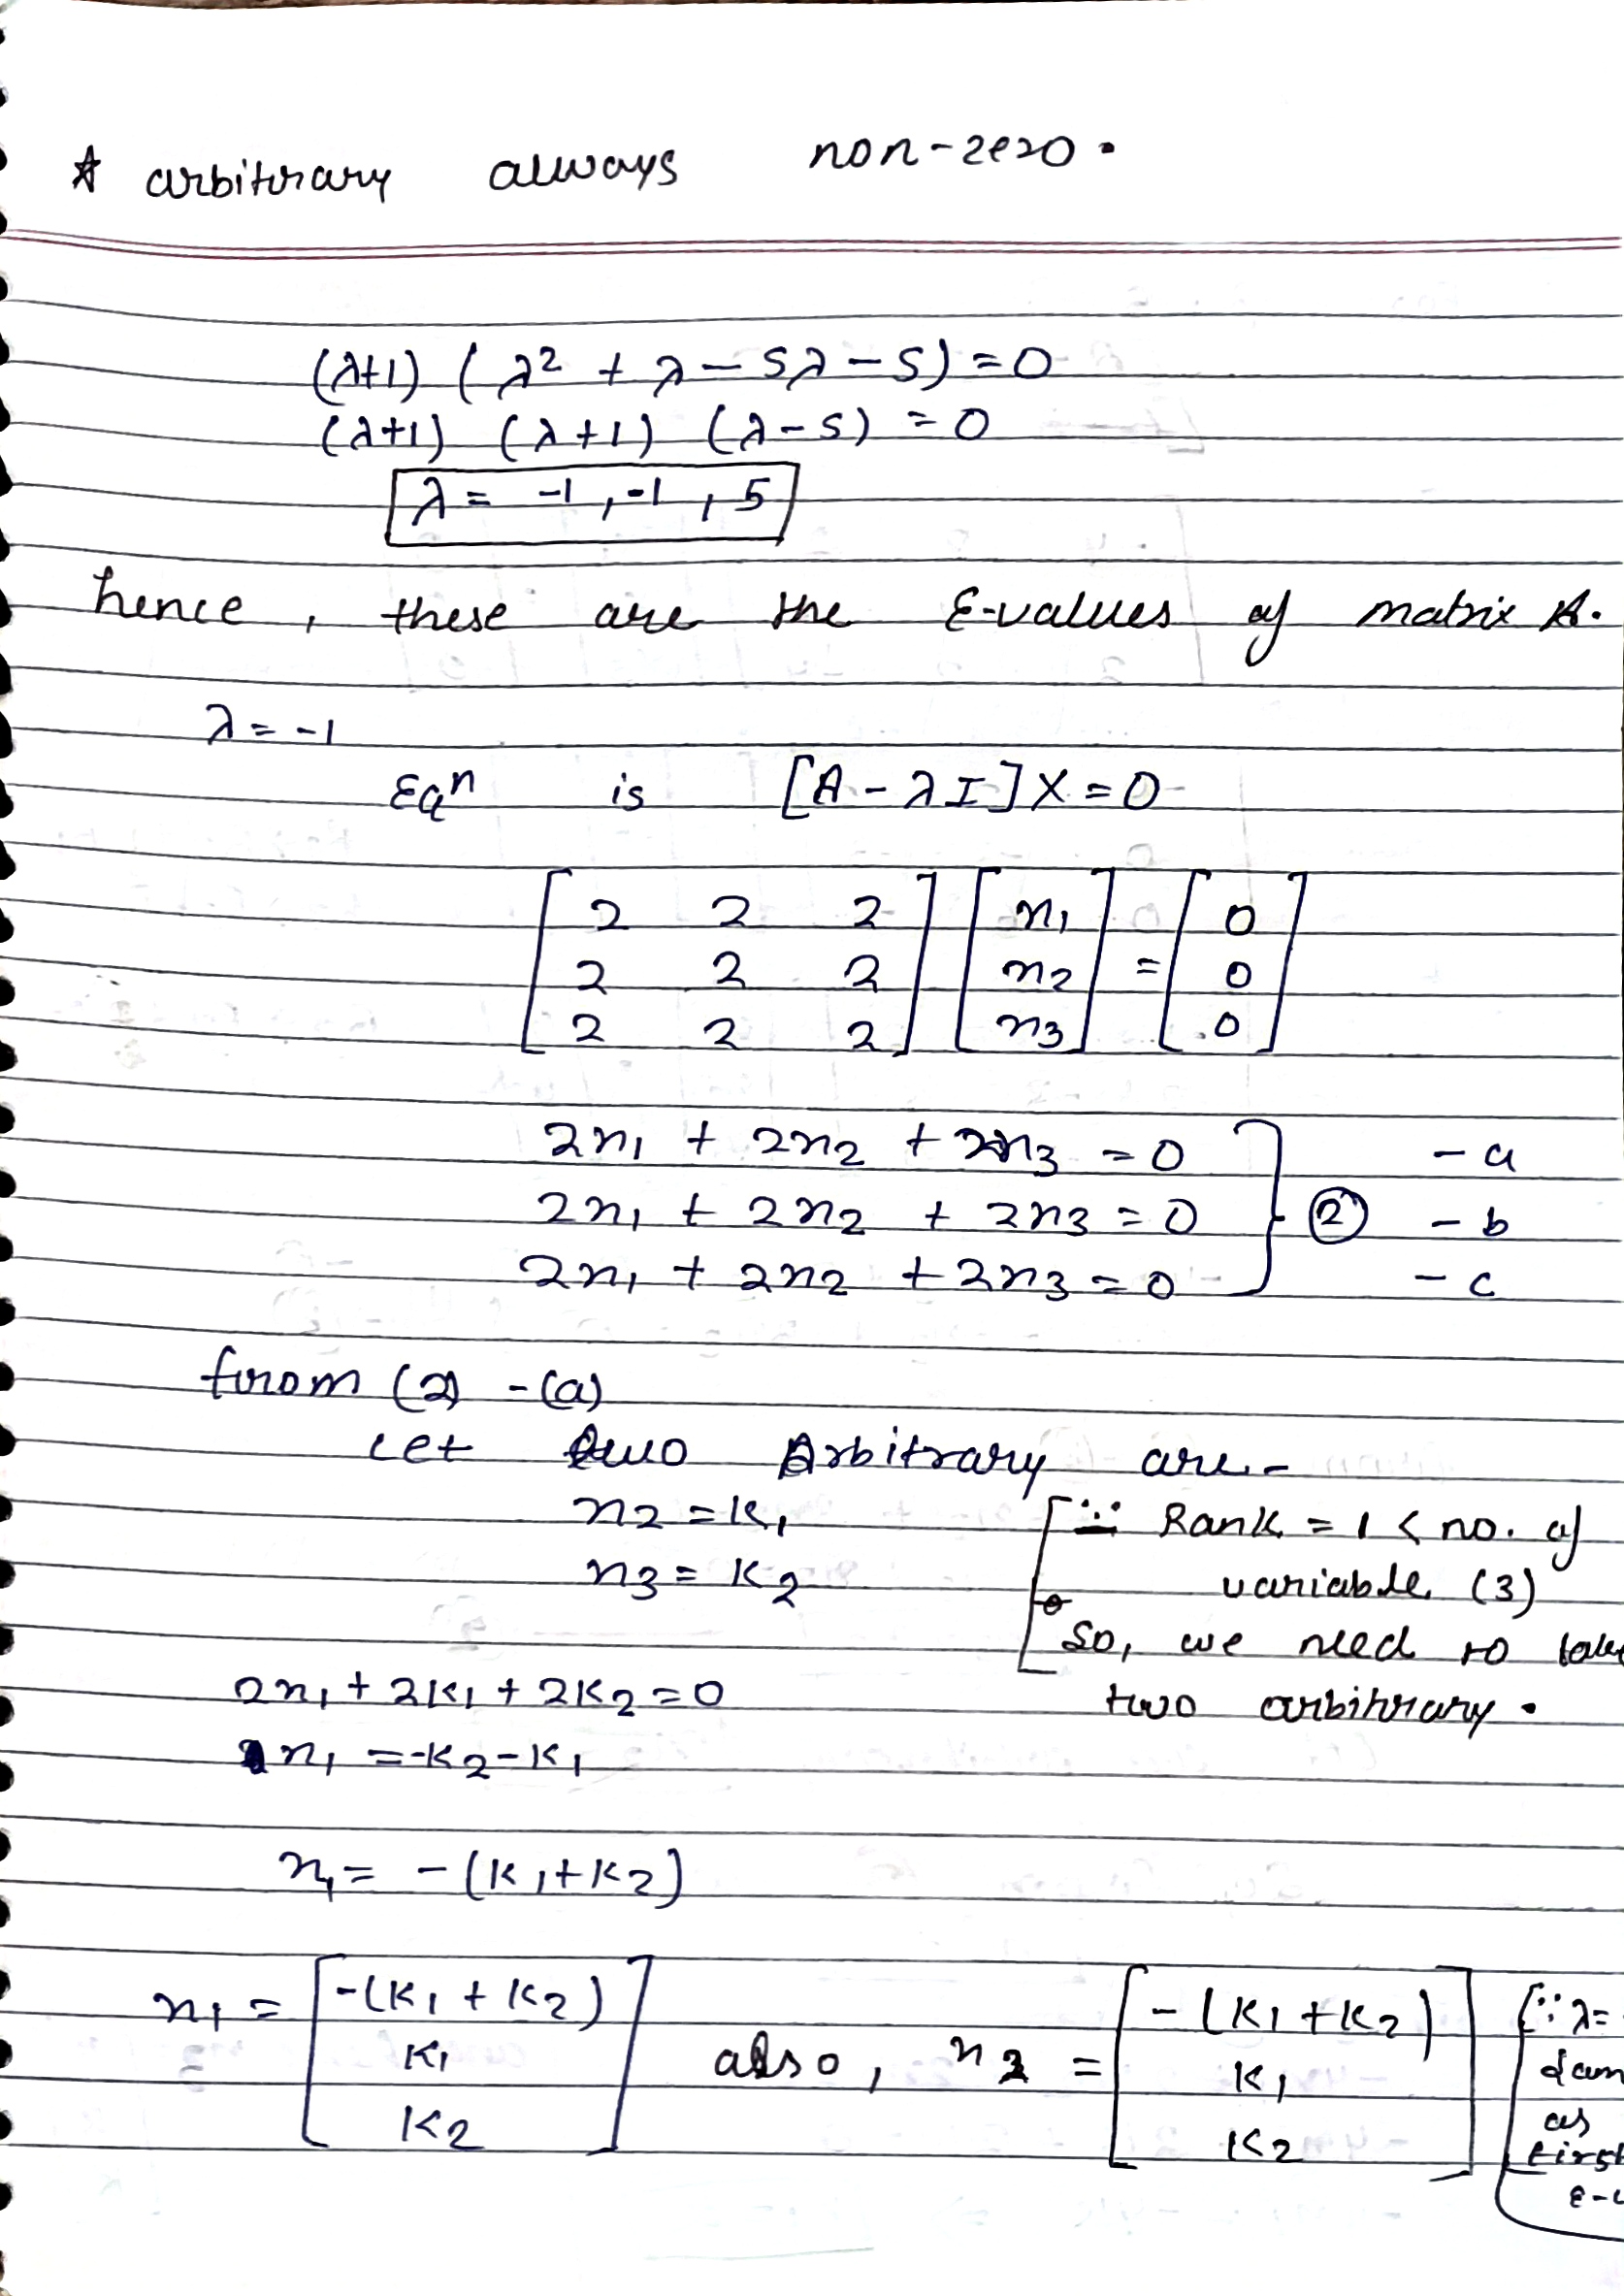 ☆ arbitrary always non-zero.
(λ+1) (λ² + λ - 5λ - 5) = 0
(λ+1) (λ+1) (λ-5) = 0
λ = -1, -1, 5
hence, these are the E-values of matrix A.
λ = -1
Eqⁿ is [A - λI]X = 0
[2 2 2] [x₁] = [0]
[2 2 2] [x₂] = [0]
[2 2 2] [x₃] = [0]
2x₁ + 2x₂ + 2x₃ = 0 - a
2x₁ + 2x₂ + 2x₃ = 0 ② - b
2x₁ + 2x₂ + 2x₃ = 0 - c
from (2) - (a)
Let two Arbitrary are -
x₂ = K₁
x₃ = K₂
[∵ Rank = 1 < no. of
variable (3)
So, we need to
two arbitrary.
2x₁ + 2K₁ + 2K₂ = 0
x₁ = -K₂ - K₁
x₁ = -(K₁+K₂)
x₁ = [-(K₁+K₂)] also, x₂ = [-(K₁+K₂)]
[K₁] [K₁]
[K₂] [K₂]
[∵ λ=
as
first